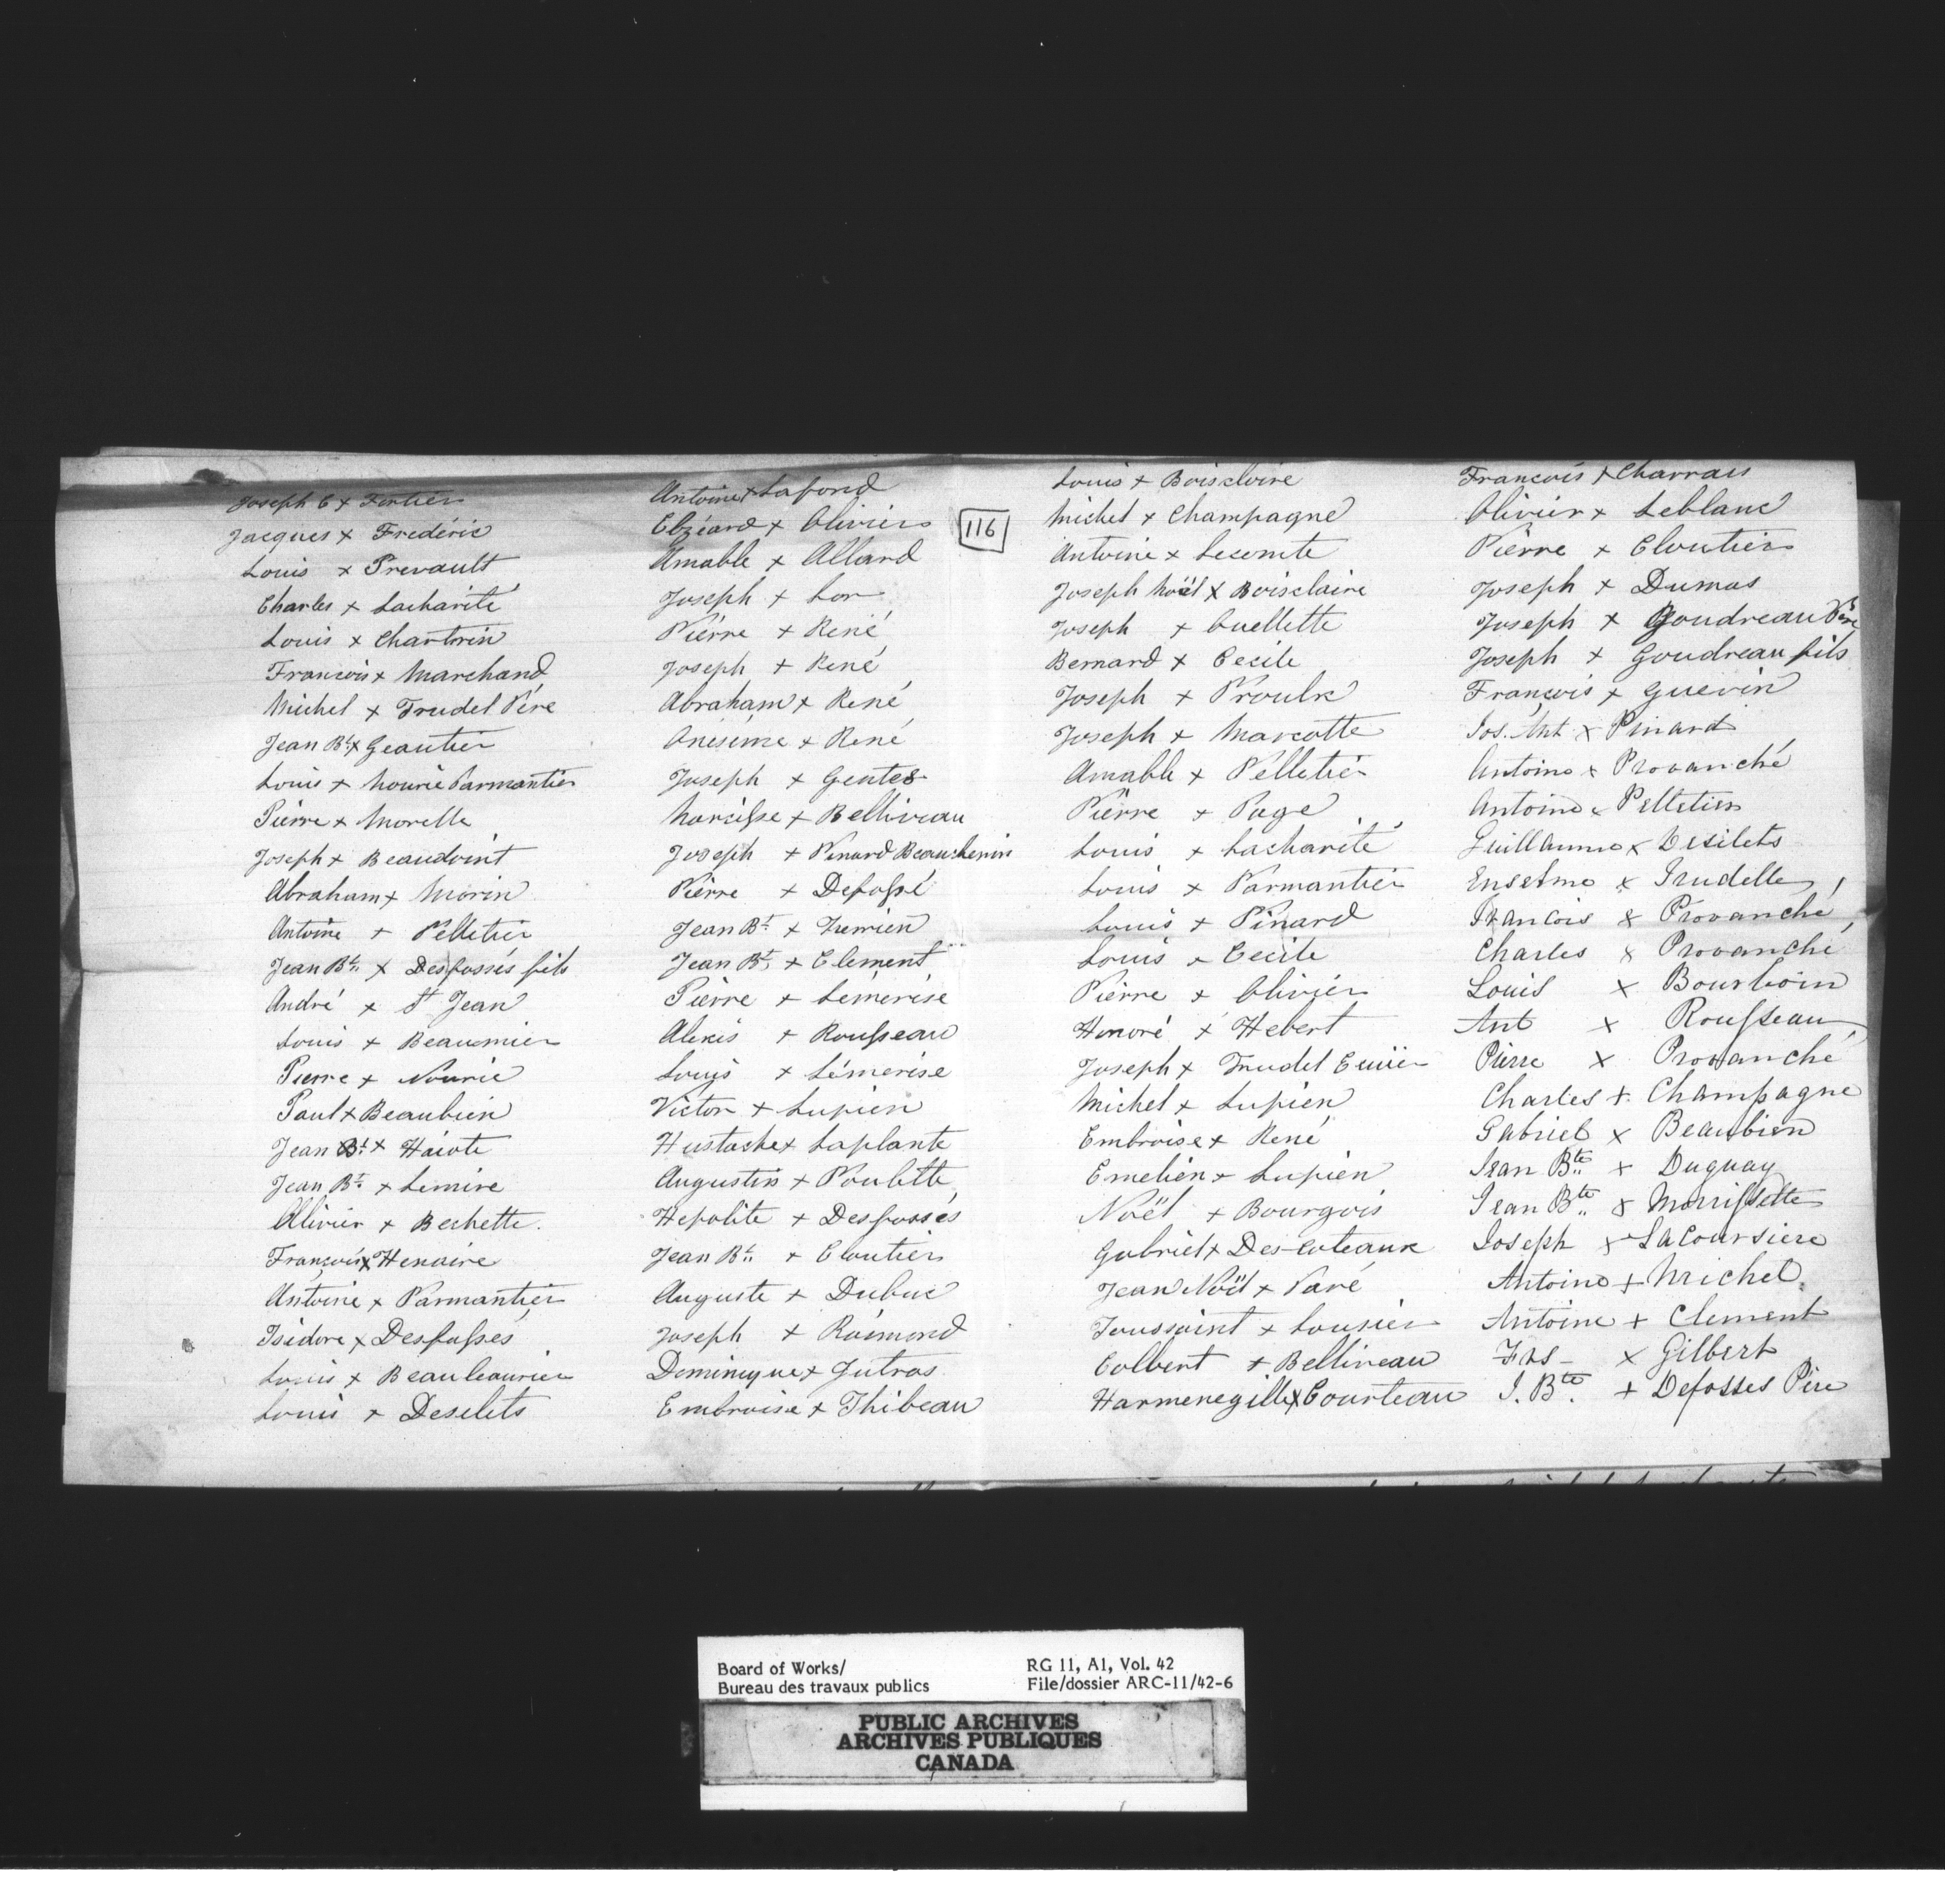 Joseph C x Fortier
Jacques x Frederic
Louis x Prevault
Charles x Lacharité
Louis x Chartrin
Francois x Marchand
Michel x Trudel Père
Jean Bt x Geautier
Louis x Nourie Parmantier
Pierre x Morelle
Joseph x Beaudoint
Abraham x Morin
Antoine x Pelletier
Jean Bt. x Desfossés fils
André x St Jean
Louis x Beaumier
Pierre x Nourie
Paul x Beaubien
Jean Bt x Haiote
Jean Bt. x Lemire
Ollivier x Bechette.
François x Henaire
Antoine x Parmantier
Isidore x Desfossés
Louis x Beaulaurier
Louis x Deselets
Antoine x Lafond
Elzéard x Olivier
Amable x Allard
Joseph x Lor
Pierre x René
Joseph x René
Abraham x René
Onésime x René
Joseph x Gentes
Narcisse x Belliveau
Joseph x Pinard Beauchemin
Pierre x Defossé
Jean Bt. x Therrien
Jean Bt. x Clement
Pierre x Lemerise
Alexis x Rousseau
Louis x Lémerise
Victor x Lupien
Hustache x Laplante
Augustin x Poulette
Hepolite x Desfossés
Jean Bt. x Cloutier
Auguste x Dubuc
Joseph x Raimond
Dominique x Jutras
Embroise x Thibeau
116
Louis x Boisclaire
Michel x Champagne
Antoine x Lecomte
Joseph Noël x Boisclaire
Joseph x Ouellette
Bernard x Cecile
Joseph x Proulx
Joseph x Marcotte
Amable x Pelletier
Pierre x Page
Louis x Lacharité
Louis x Parmantier
Louis x Pinard
Louis x Cecile
Pierre x Olivier
Honoré x Hebert
Joseph x Trudel
Michel x Lupien
Embroise x René
Emelien x Lupien
Noël x Bourgois
Gabriel x Des-Coteaux
Jean Noël x Paré
Toussaint x Lousier
Colbert x Bellireau
Harmenegille x Courteau
Francois x Charrais
Olivier x Leblanc
Pierre x Cloutier
Joseph x Dumas
Joseph x Goudreau Père
Joseph x Goudreau fils
François x Guerin
Jos. Ant x Pinard
Antoine x Provanché
Antoine x Pelletier
Guillaume x Desilets
Enselme x Trudelle
Francois x Provanché
Charles x Provanché
Louis x Bourboin
Ant x Rousseau
Pierre x Provanché
Charles x Champagne
Gabriel x Beaubien
Jean Bte x Duguay
Jean Bte x Morrissette
Joseph x Lacoursiere
Antoine x Michel
Antoine x Clement
Frs - x Gilbert
J. Bte. x Defosses Père
Board of Works/
Bureau des travaux publics
RG 11, A1, Vol. 42
File/dossier ARC-11/42-6
PUBLIC ARCHIVES
ARCHIVES PUBLIQUES
CANADA